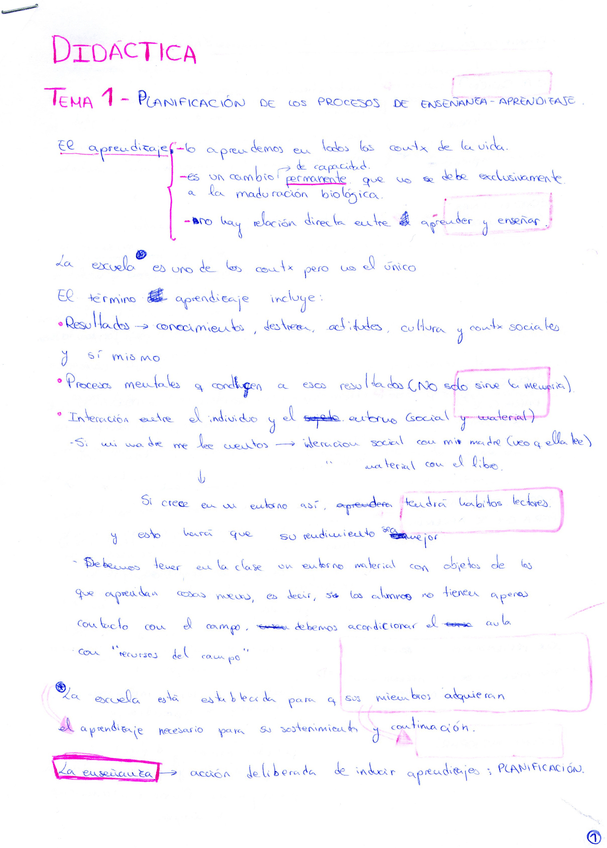 DIDÁCTICA
TEMA 1 - PLANIFICACIÓN DE LOS PROCESOS DE ENSEÑANZA - APRENDIZAJE.
El aprendizaje - lo aprendemos en todos los contx de la vida.
→ de capacidad.
- es un cambio permanente que no se debe exclusivamente
a la maduración biológica.
- no hay relación directa entre aprender y enseñar
La escuela es uno de los contx pero no el único
El término aprendizaje incluye:
• Resultados → conocimientos, destreza, actitudes, cultura y contx sociales
y sí mismo
• Procesos mentales q conducen a esos resultados (No solo sirve la memoria).
• Interacción entre el individuo y el sujeto entorno (social y material)
- Si mi madre me lee cuentos → interacion social con mi madre (veo q ella lee)
" material con el libro.
↓
Si crece en un entorno así, aprenderá tendrá habitos lectores
y esto hará que su rendimiento sea mejor
- Debemos tener en la clase un entorno material con objetos de los
que aprendan cosas nuevas, es decir, si los alumnos no tienen apenas
contacto con el campo, debemos acondicionar el aula
con "recursos del campo"
La escuela está establecida para q sus miembros adquieran
el aprendizaje necesario para su sostenimiento y continuación.
La enseñanza → acción deliberada de inducir aprendizajes; PLANIFICACIÓN.
1